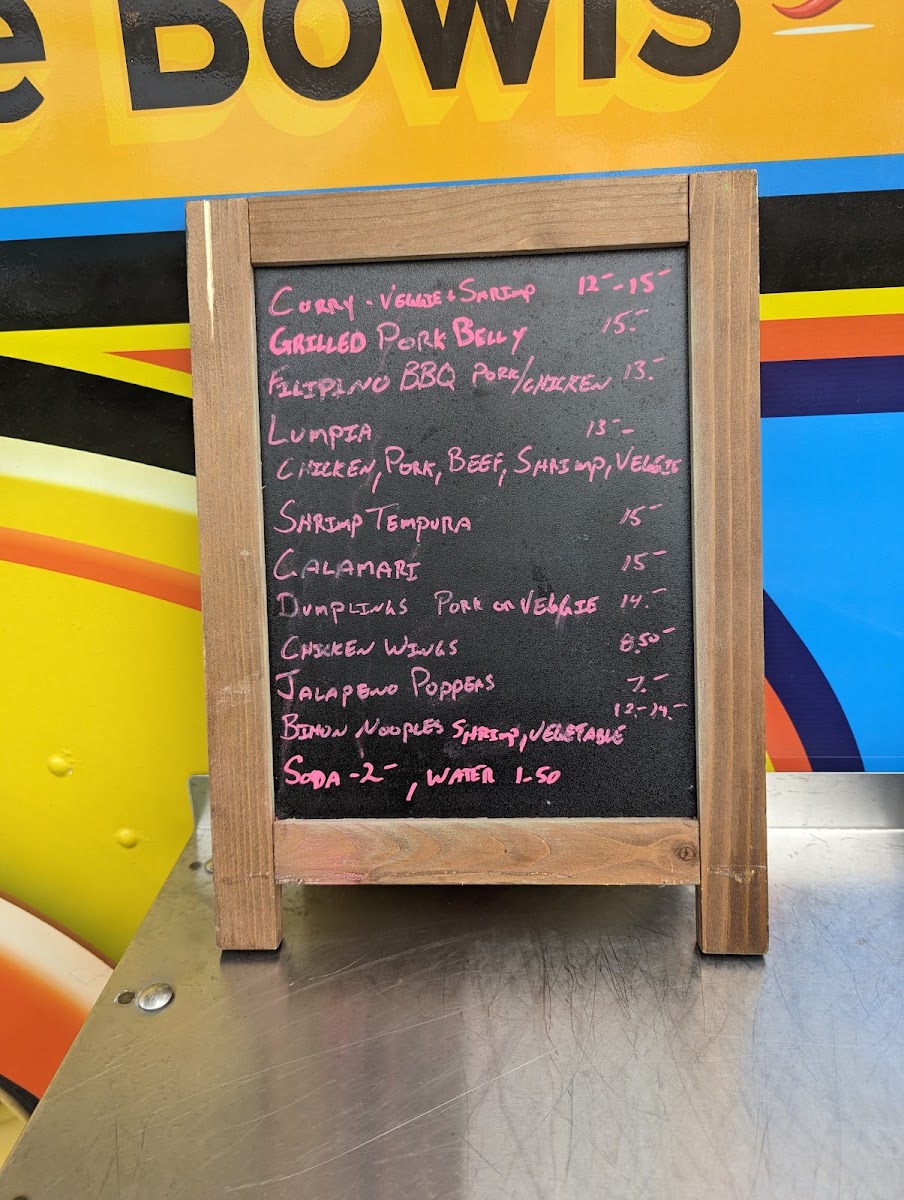 e Bowls
CURRY - VEGGIE & SHRIMP 12- - 15-
GRILLED PORK BELLY 15.-
FILIPINO BBQ PORK/CHICKEN 13.-
LUMPIA 13--
CHICKEN, PORK, BEEF, SHRIMP, VEGGIE
SHRIMP TEMPURA 15-
CALAMARI 15-
DUMPLINGS PORK OR VEGGIE 14.-
CHICKEN WINGS 8.50-
JALAPENO POPPERS 7.-
12.-14.-
BIHON NOODLES SHRIMP, VEGETABLE
SODA - 2-, WATER 1-50